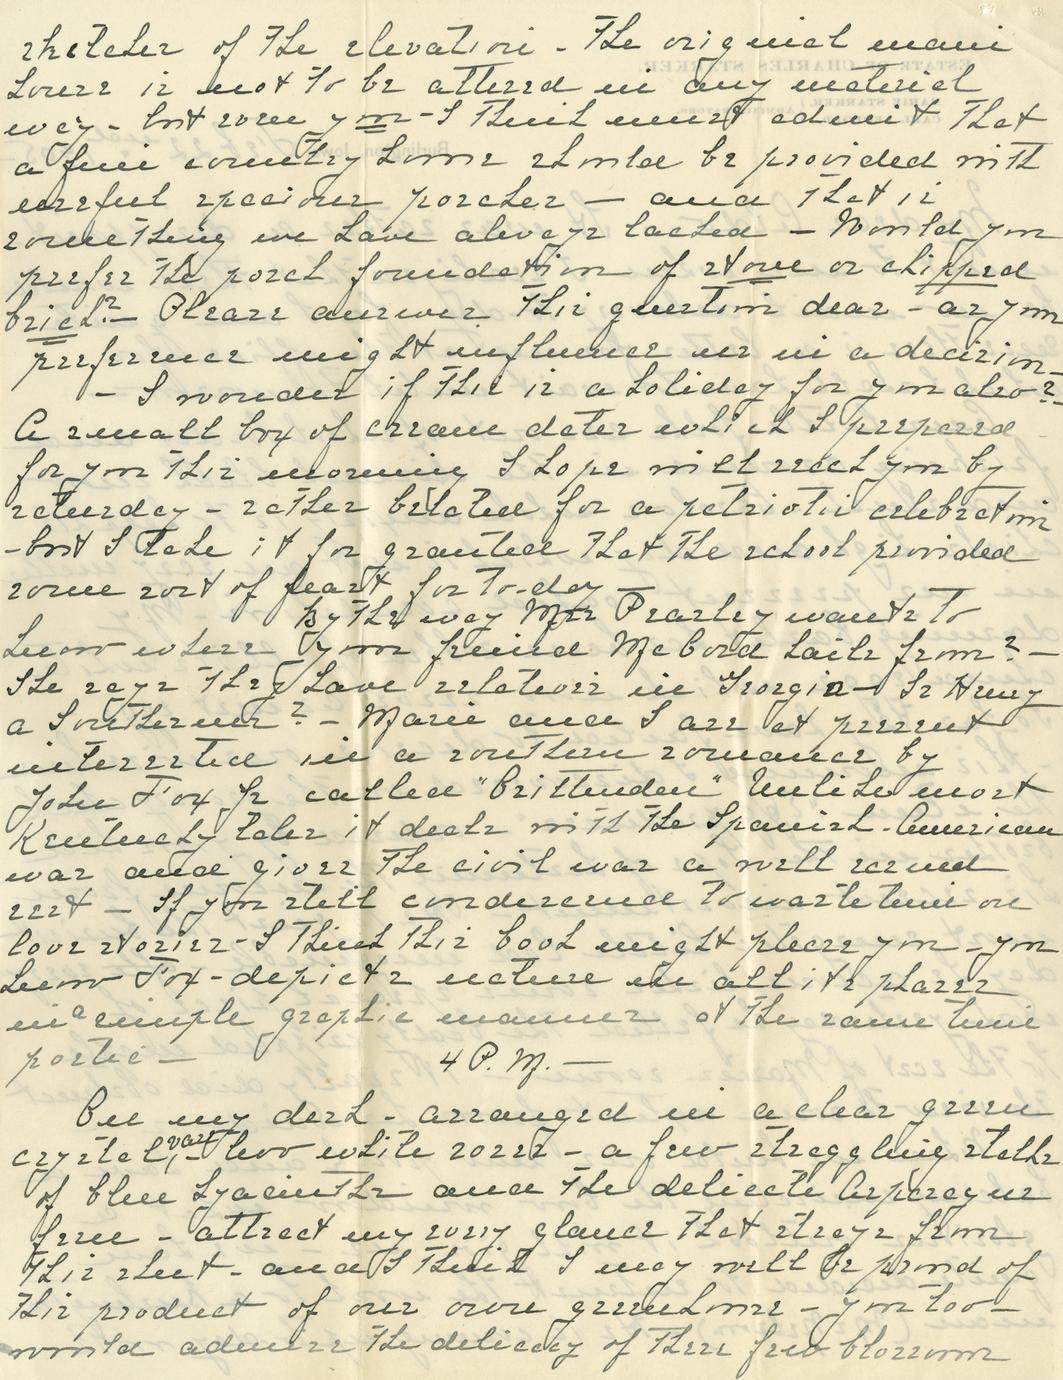 sketches of the elevation - The original main
house is not to be altered in any material
way - but even you - I think must admit that
a fine country home should be provided with
useful spacious porches — and that is
something we have always lacked - Would you
prefer the porch foundation of stone or chipped
brick? - Please answer this question dear - as your
preference might influence us in a decision -
- I wonder if this is a holiday for you also? -
A small box of cream dates which I prepared
for you this morning I hope will reach you by
saturday - rather belated for a patriotic celebration
- but I take it for granted that the school provided
some sort of feast for to-day —
By the way Mrs Prasley wants to
know where your friend McCord hails from? -
She says they have relatives in Georgia - Is Henry
a Southerner? - Marie and I are at present
interested in a southern romance by
John Fox Jr called "Crittenden" Unlike most
Kentucky tales it deals with the Spanish-American
war and gives the civil war a well earned
rest - If you still condescend to waste time on
love stories - I think this book might please you - you
know Fox - depicts nature in all its phases
in a simple graphic manner at the same time
poetic —
4 P. M. —
On my desk - arranged in a clear green
crystal vase, - two white roses - a few straggling stalks
of blue hyacinths and the delicate Asparagus
fern - attract my every glance that strays from
this sheet - and I think I may well be proud of
this product of our own greenhouse - you too -
would admire the delicacy of these few blossoms
ESTATE OF CHARLES STARKER.